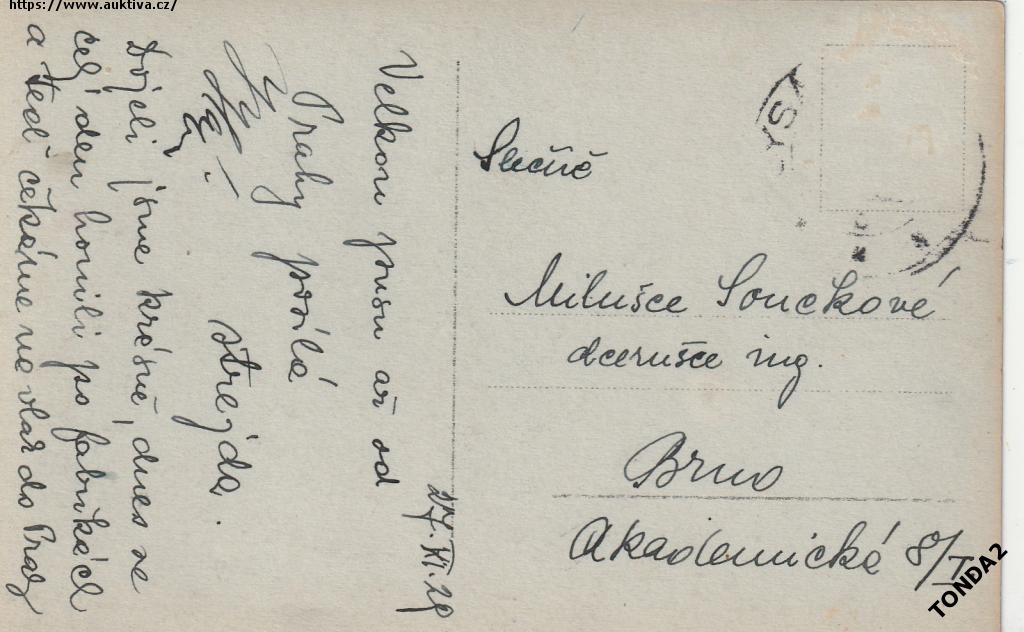 https://www.auktiva.cz/
27. XI. 29
Velkou pusu až od
Prahy posílá
strejda.
Dojeli jsme krásně, dnes se
celý den honili po fabrikách
a teď čekáme na vlak do Prahy
Slečně
Milušce Součkové
dcerušce ing.
Brno
Akademická 8/I
TONDA2